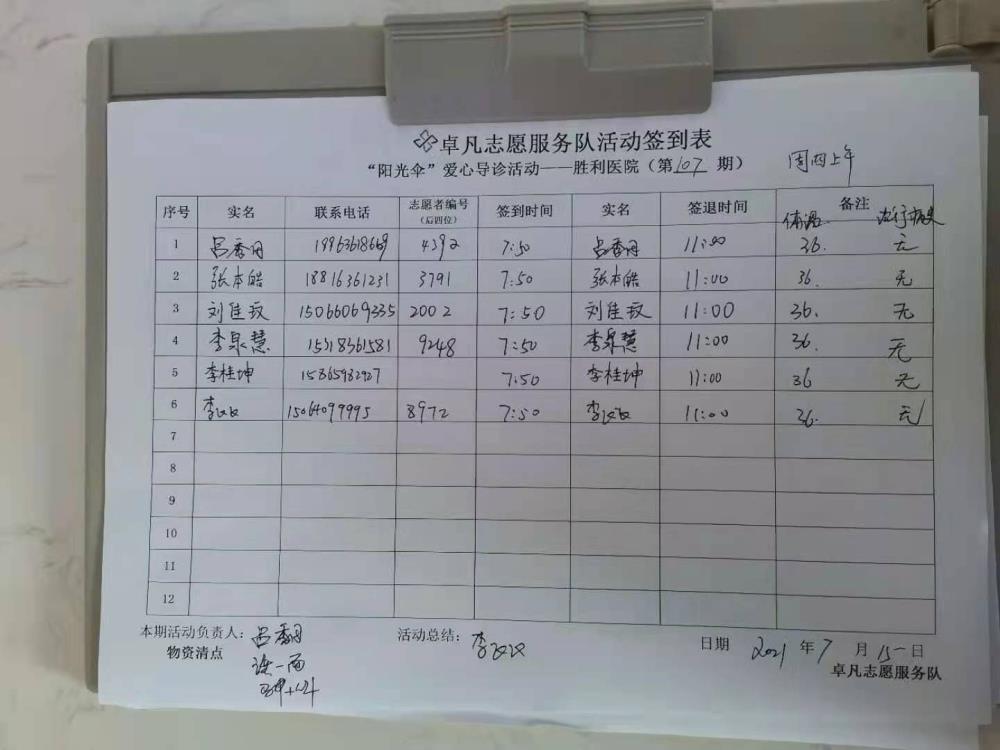 卓凡志愿服务队活动签到表
“阳光伞”爱心导诊活动——胜利医院（第107期） 周四上午
序号 实名 联系电话 志愿者编号（后四位） 签到时间 实名 签退时间 备注
体温 流行病史
1 吕香月 4392 7:50 吕香月 11:00 36. 无
2 张本皓 18816361231 3791 7:50 张本皓 11:00 36. 无
3 刘佳玫 15066069335 2002 7:50 刘佳玫 11:00 36. 无
4 李泉慧 15318361581 9248 7:50 李泉慧 11:00 36. 无
5 李桂坤 15865982927 7:50 李桂坤 11:00 36 无
6 李 15064099995 8972 7:50 李 11:00 36. 无
7
8
9
10
11
12
本期活动负责人：吕香月 活动总结：李 日期 2021年7月15日
物资清点
卓凡志愿服务队